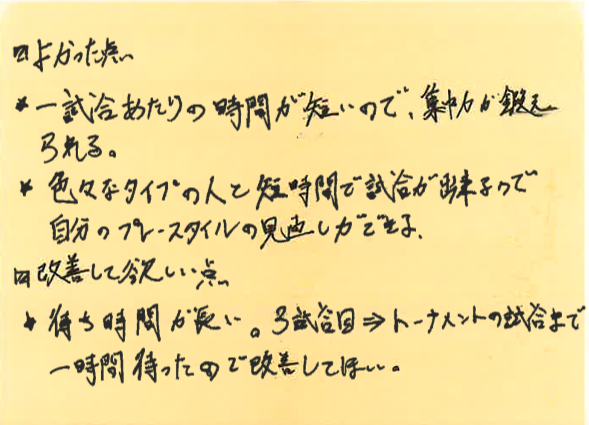 □よかった点
* 一試合あたりの時間が短いので、集中力が鍛え
られる。
* 色々なタイプの人と短時間で試合が出来るので
自分のプレースタイルの見直しができる。
□改善して欲しい点
* 待ち時間が長い。3試合目⇒トーナメントの試合まで
一時間待ったので改善してほしい。